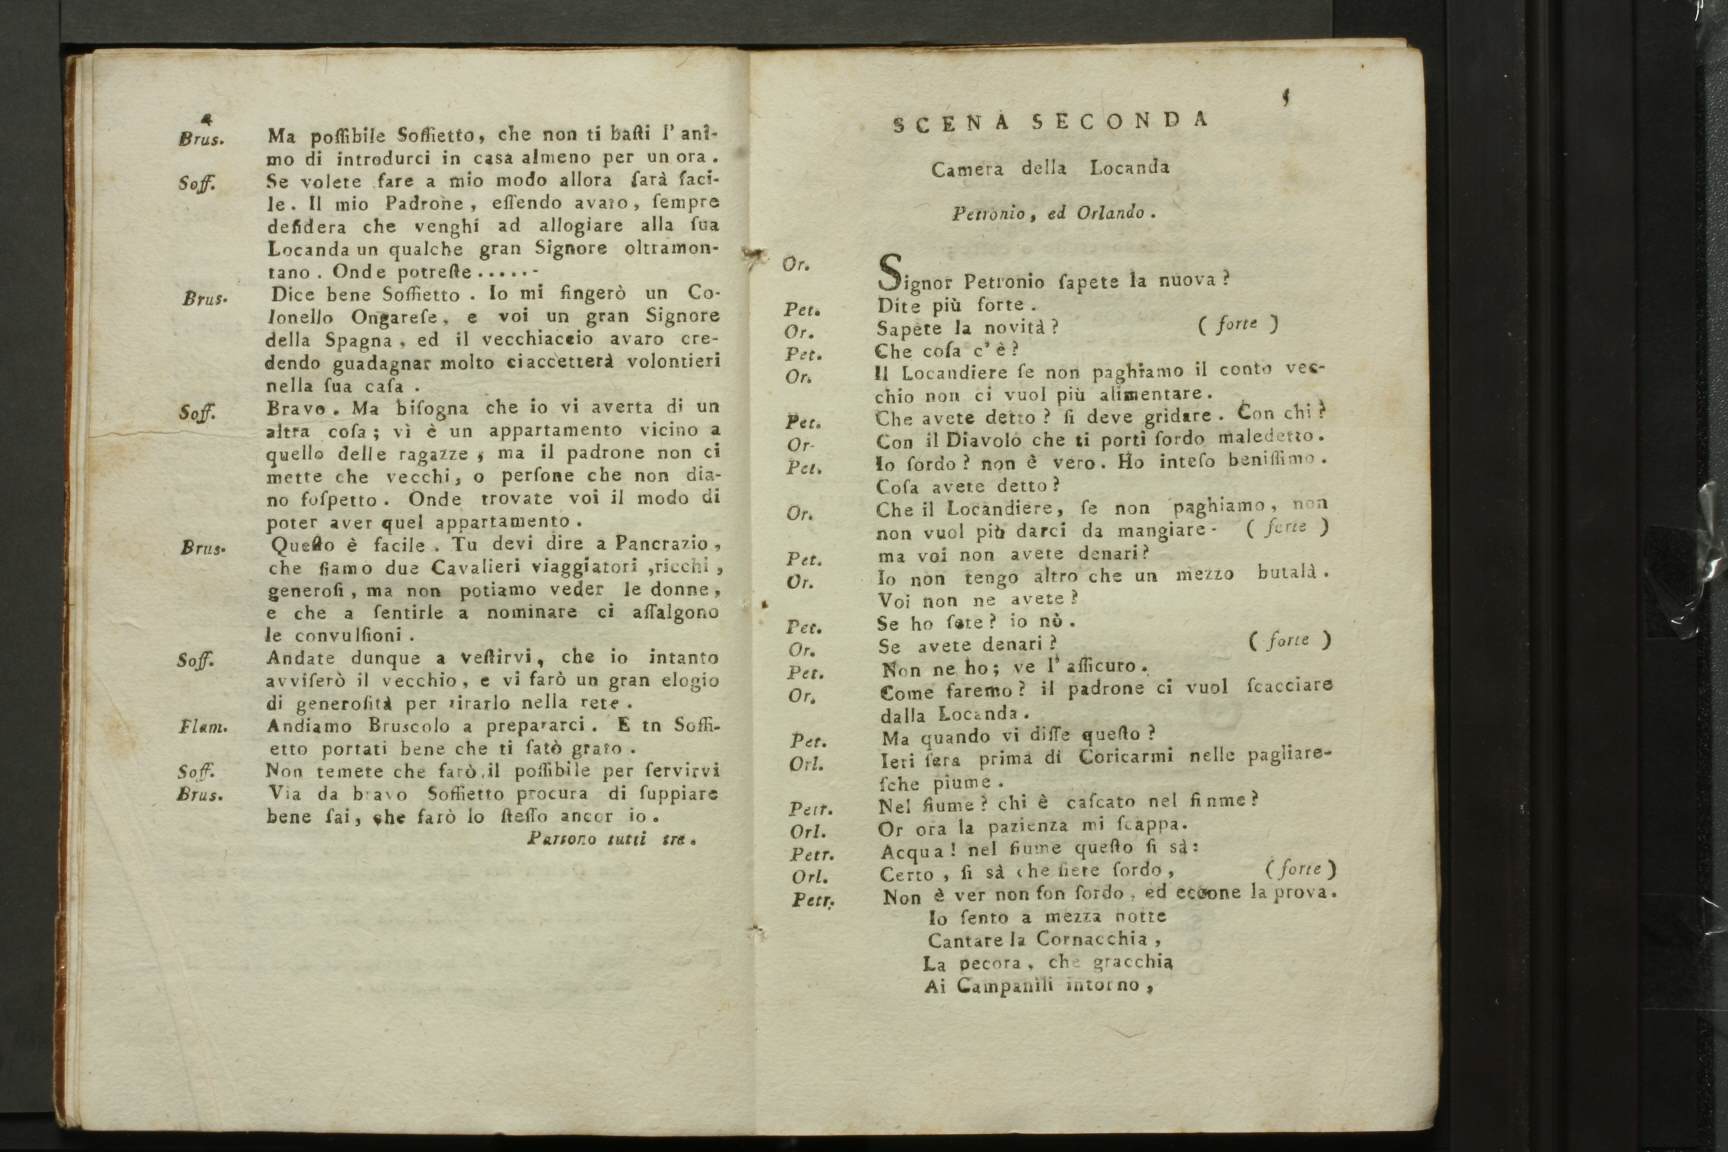 4
Brus. Ma poſſibile Soffietto, che non ti baſti l' ani-
mo di introdurci in casa almeno per un ora.
Soff. Se volete fare a mio modo allora ſarà faci-
le. Il mio Padrone, eſſendo avaro, ſempre
deſidera che venghi ad allogiare alla ſua
Locanda un qualche gran Signore oltramon-
tano. Onde potreſte.....-
Brus. Dice bene Soffietto. Io mi fingerò un Co-
lonello Ongareſe, e voi un gran Signore
della Spagna, ed il vecchiaccio avaro cre-
dendo guadagnar molto ciaccetterà volontieri
nella ſua caſa.
Soff. Bravo. Ma biſogna che io vi averta di un
altra coſa; vì è un appartamento vicino a
quello delle ragazze, ma il padrone non ci
mette che vecchi, o perſone che non dia-
no ſoſpetto. Onde trovate voi il modo di
poter aver quel appartamento.
Brus. Queſto è facile. Tu devi dire a Pancrazio,
che ſiamo due Cavalieri viaggiatori, ricchi,
generoſi, ma non potiamo veder le donne,
e che a ſentirle a nominare ci aſſalgono
le convulſioni.
Soff. Andate dunque a veſtirvi, che io intanto
avviſerò il vecchio, e vi farò un gran elogio
di generoſità per tirarlo nella rete.
Flam. Andiamo Bruscolo a prepararci. E tn Soffi-
etto portati bene che ti ſatò grato.
Soff. Non temete che farò il poſſibile per ſervirvi
Brus. Via da bravo Soffietto procura di ſuppiare
bene ſai, che farò lo ſteſſo ancor io.
Partono tutti tre.
5
SCENA SECONDA
Camera della Locanda
Petronio, ed Orlando.
Or. Signor Petronio ſapete la nuova?
Pet. Dite più forte.
Or. Sapete la novità? (forte)
Pet. Che coſa c' è?
Or. Il Locandiere ſe non paghiamo il conto vec-
chio non ci vuol più alimentare.
Pet. Che avete detto? ſi deve gridare. Con chi?
Or- Con il Diavolo che ti porti ſordo maledetto.
Pet. Io ſordo? non è vero. Ho inteſo beniſſimo.
Coſa avete detto?
Or. Che il Locandiere, ſe non paghiamo, non
non vuol più darci da mangiare- (forte)
Pet. ma voi non avete denari?
Or. Io non tengo altro che un mezzo butalà.
Voi non ne avete?
Pet. Se ho ſete? io nò.
Or. Se avete denari? (forte)
Pet. Non ne ho; ve l' aſſicuro.
Or. Come faremo? il padrone ci vuol ſcacciare
dalla Locanda.
Pet. Ma quando vi diſſe queſto?
Orl. Ieri ſera prima di Coricarmi nelle pagliare-
ſche piume.
Petr. Nel fiume? chi è caſcato nel finme?
Orl. Or ora la pazienza mi ſcappa.
Petr. Acqua! nel fiume queſto ſi sà:
Orl. Certo, ſi sà che ſiete ſordo, (forte)
Petr. Non è ver non ſon ſordo, ed eccone la prova.
Io ſento a mezza notte
Cantare la Cornacchia,
La pecora, che gracchia
Ai Campanili intorno,